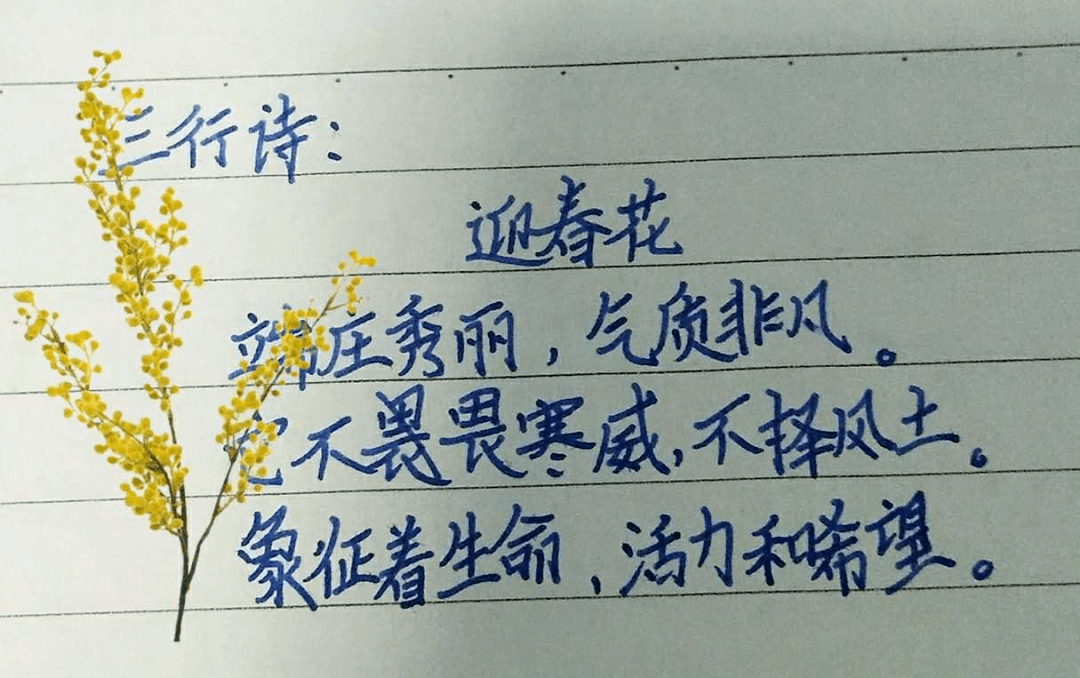 三行诗：
迎春花
端庄秀丽，气质非凡。
它不畏畏寒威，不择风土。
象征着生命，活力和希望。